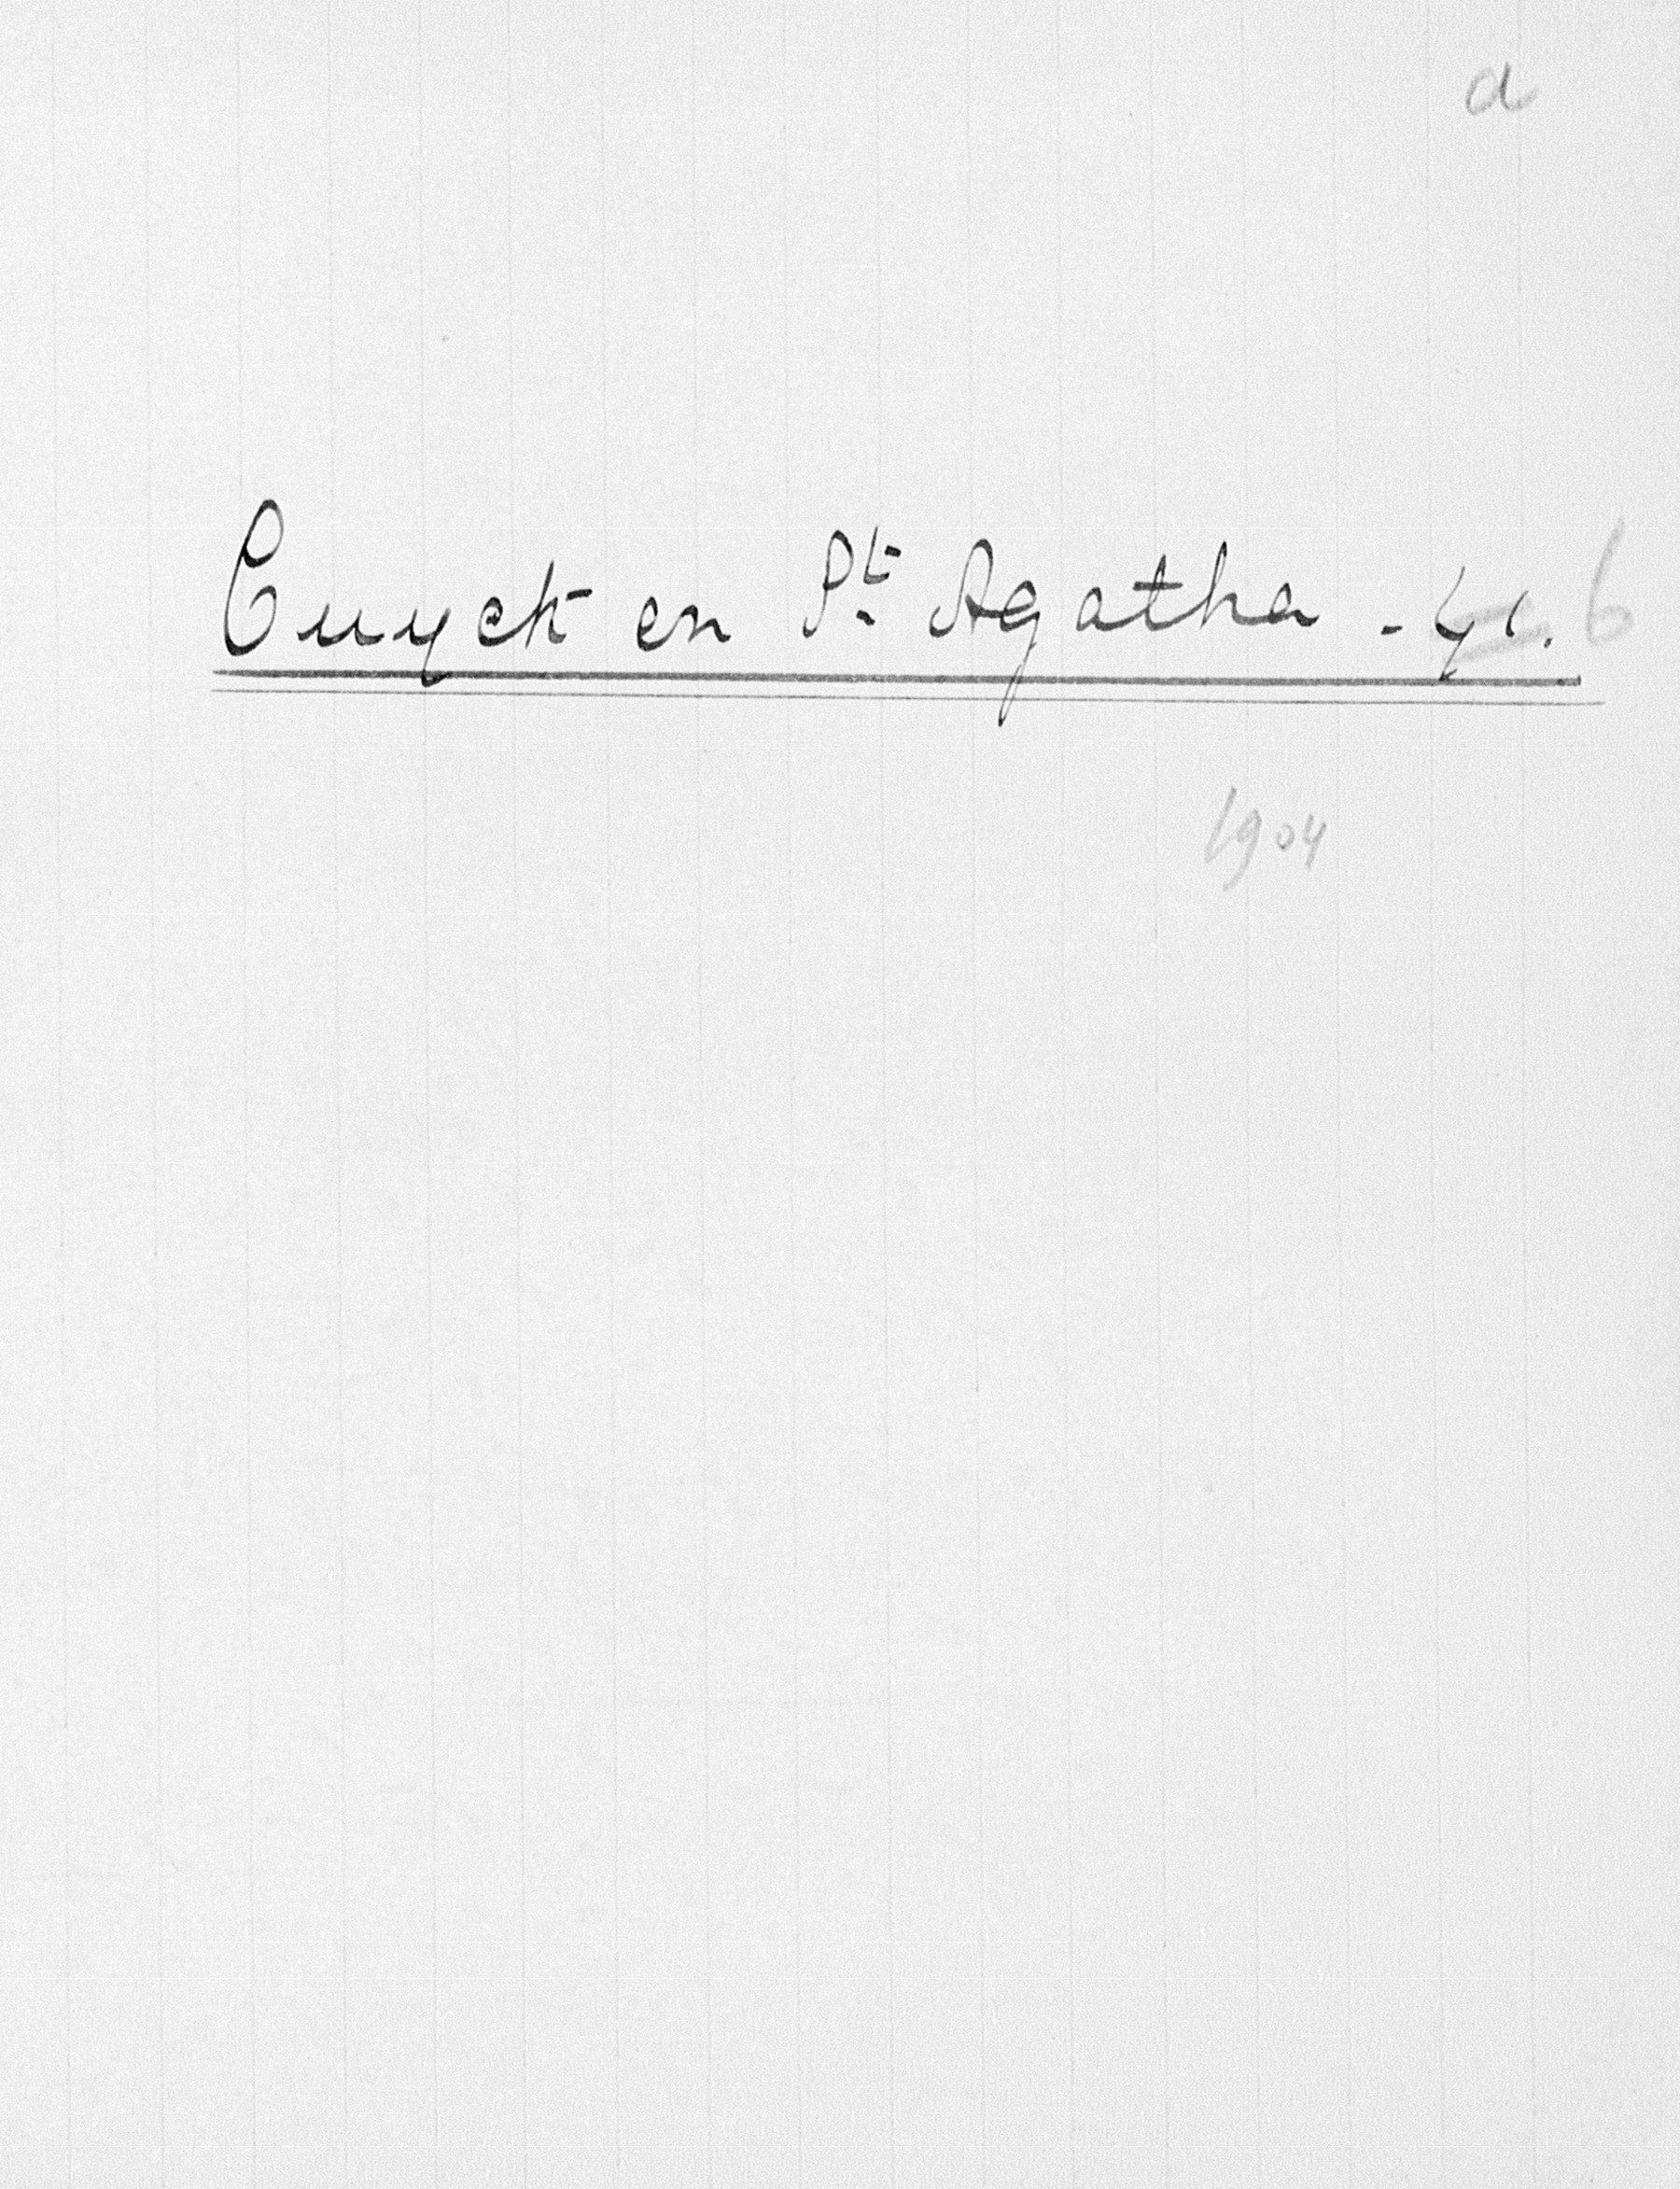 a
Cuyck en St. Agatha - 41. 6
1904